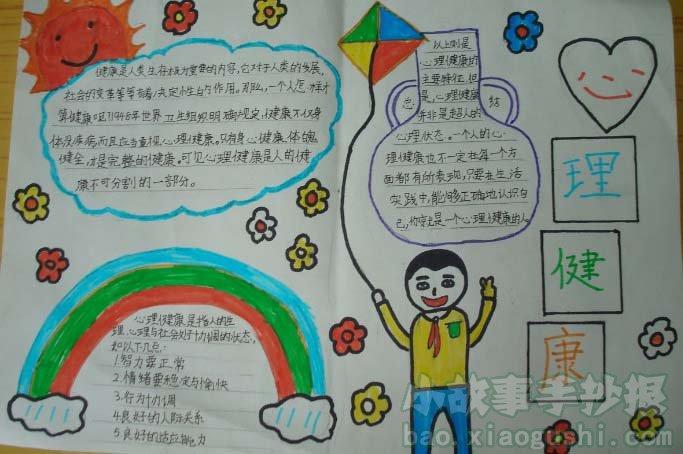 健康是人类生存极为重要的内容,它对于人类的发展,
社会的变革等等有着决定小生的作用。那么,一个人怎样才
算健康呢?1946年世界卫生组织明确规定,健康不仅身
体没疾病,而且应当重视心理健康。只有身心健康、体魄
健全,才是完整的健康。可见心理健康是人的健
康不可分割的一部分。
以上则是
心理健康的
主要特征,但
是,心理健康
并非是超人的
心理状态。一个人的心
理健康也不一定在每个方
面都有所表现,只要在生活
实践中,能够正确地认识自
己,你就是一个心理健康的人
总
结
理
健
康
心理健康是指人的生
理、心理与社会处于协调的状态,
如以下几点:
1.智力要正常
2.情绪要稳定与愉快
3.行为协调
4.良好的人际关系
5.良好的适应能力
小故事手抄报
bao.xiaogushi.com